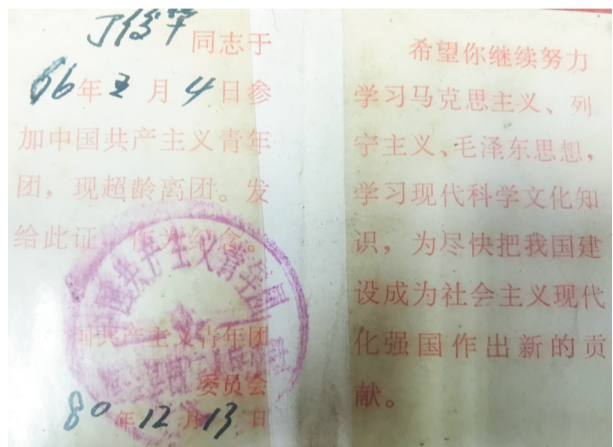 同志于
66年五月4日参
加中国共产主义青年
团，现超龄离团。发
给此证，作为纪念。
中国共产主义青年团
委员会
80年12月13日
希望你继续努力
学习马克思主义、列
宁主义、毛泽东思想，
学习现代科学文化知
识，为尽快把我国建
设成为社会主义现代
化强国作出新的贡
献。